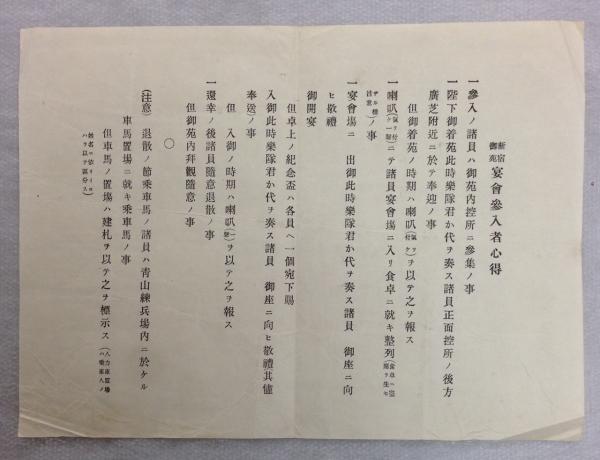 新宿御苑 宴會參入者心得
一參入ノ諸員ハ御苑内控所ニ參集ノ事
一陛下御着苑此時樂隊君か代ヲ奏ス諸員正面控所ノ後方
廣芝附近ニ於テ奉迎ノ事
但御着苑ノ時期ハ喇叭(氣ヲ付ケ)ヲ以テ之ヲ報ス
一喇叭(氣ヲ付ケ一聲)ニテ諸員宴會場ニ入リ食卓ニ就キ整列
ノ事
一宴會場ニ 出御此時樂隊君か代ヲ奏ス諸員 御座ニ向
ヒ敬禮
御開宴
但卓上ノ紀念盃ハ各員ヘ一個宛下賜
入御此時樂隊君か代ヲ奏ス諸員 御座ニ向ヒ敬禮其儘
奉送ノ事
但 入御ノ時期ハ喇叭(一聲)ヲ以テ之ヲ報ス
一還幸ノ後諸員隨意退散ノ事
但御苑内拜觀隨意ノ事
○
(注意) 退散ノ節乘車馬ノ諸員ハ青山練兵場内ニ於ケル
車馬置場ニ就キ乘車馬ノ事
但車馬ノ置場ハ建札ヲ以テ之ヲ標示ス(人力車置場ハ乘車人ノ
姓名ニ依リイロハヲ以テ區分ス)